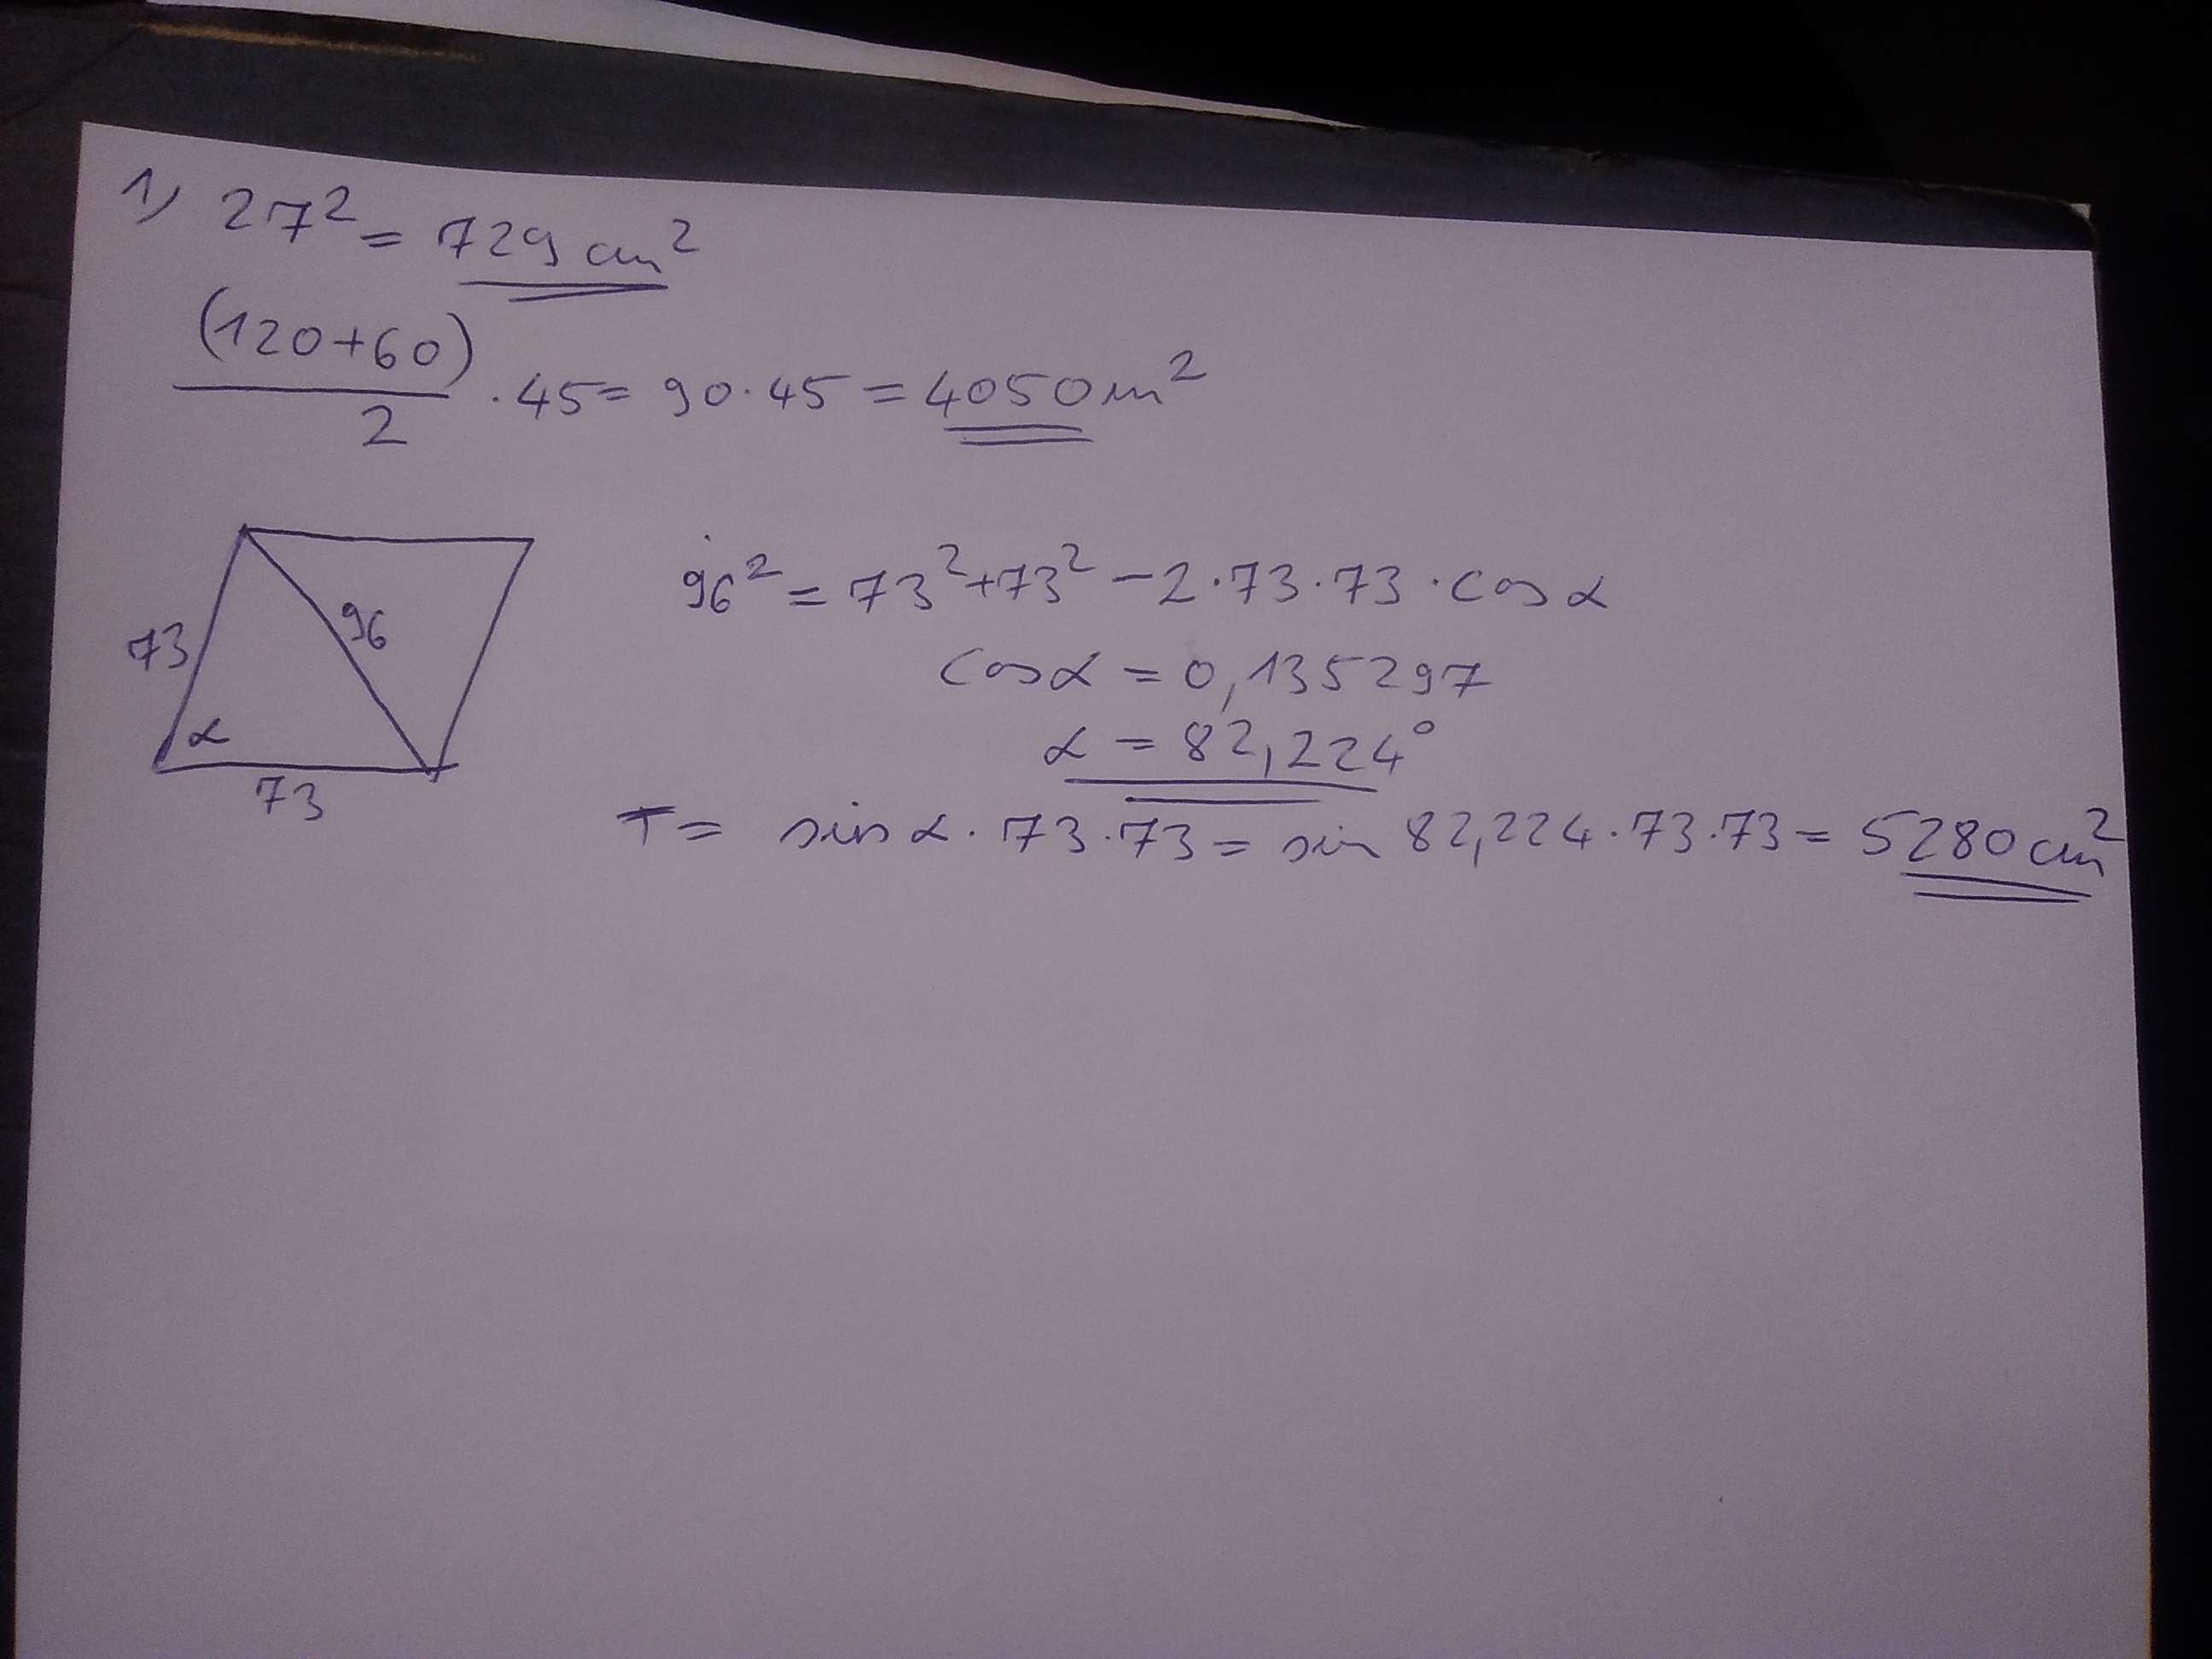 1) 27² = 729 cm²
(120+60)
2
· 45 = 90 · 45 = 4050 m²
96² = 73² + 73² − 2 · 73 · 73 · cos α
cos α = 0,135297
α = 82,224°
T = sin α · 73 · 73 = sin 82,224 · 73 · 73 = 5280 cm²
73
96
α
73